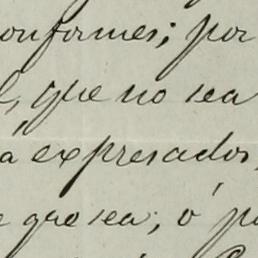 onformes; por
l, que no sea
a expresados,
e que sea; ó p